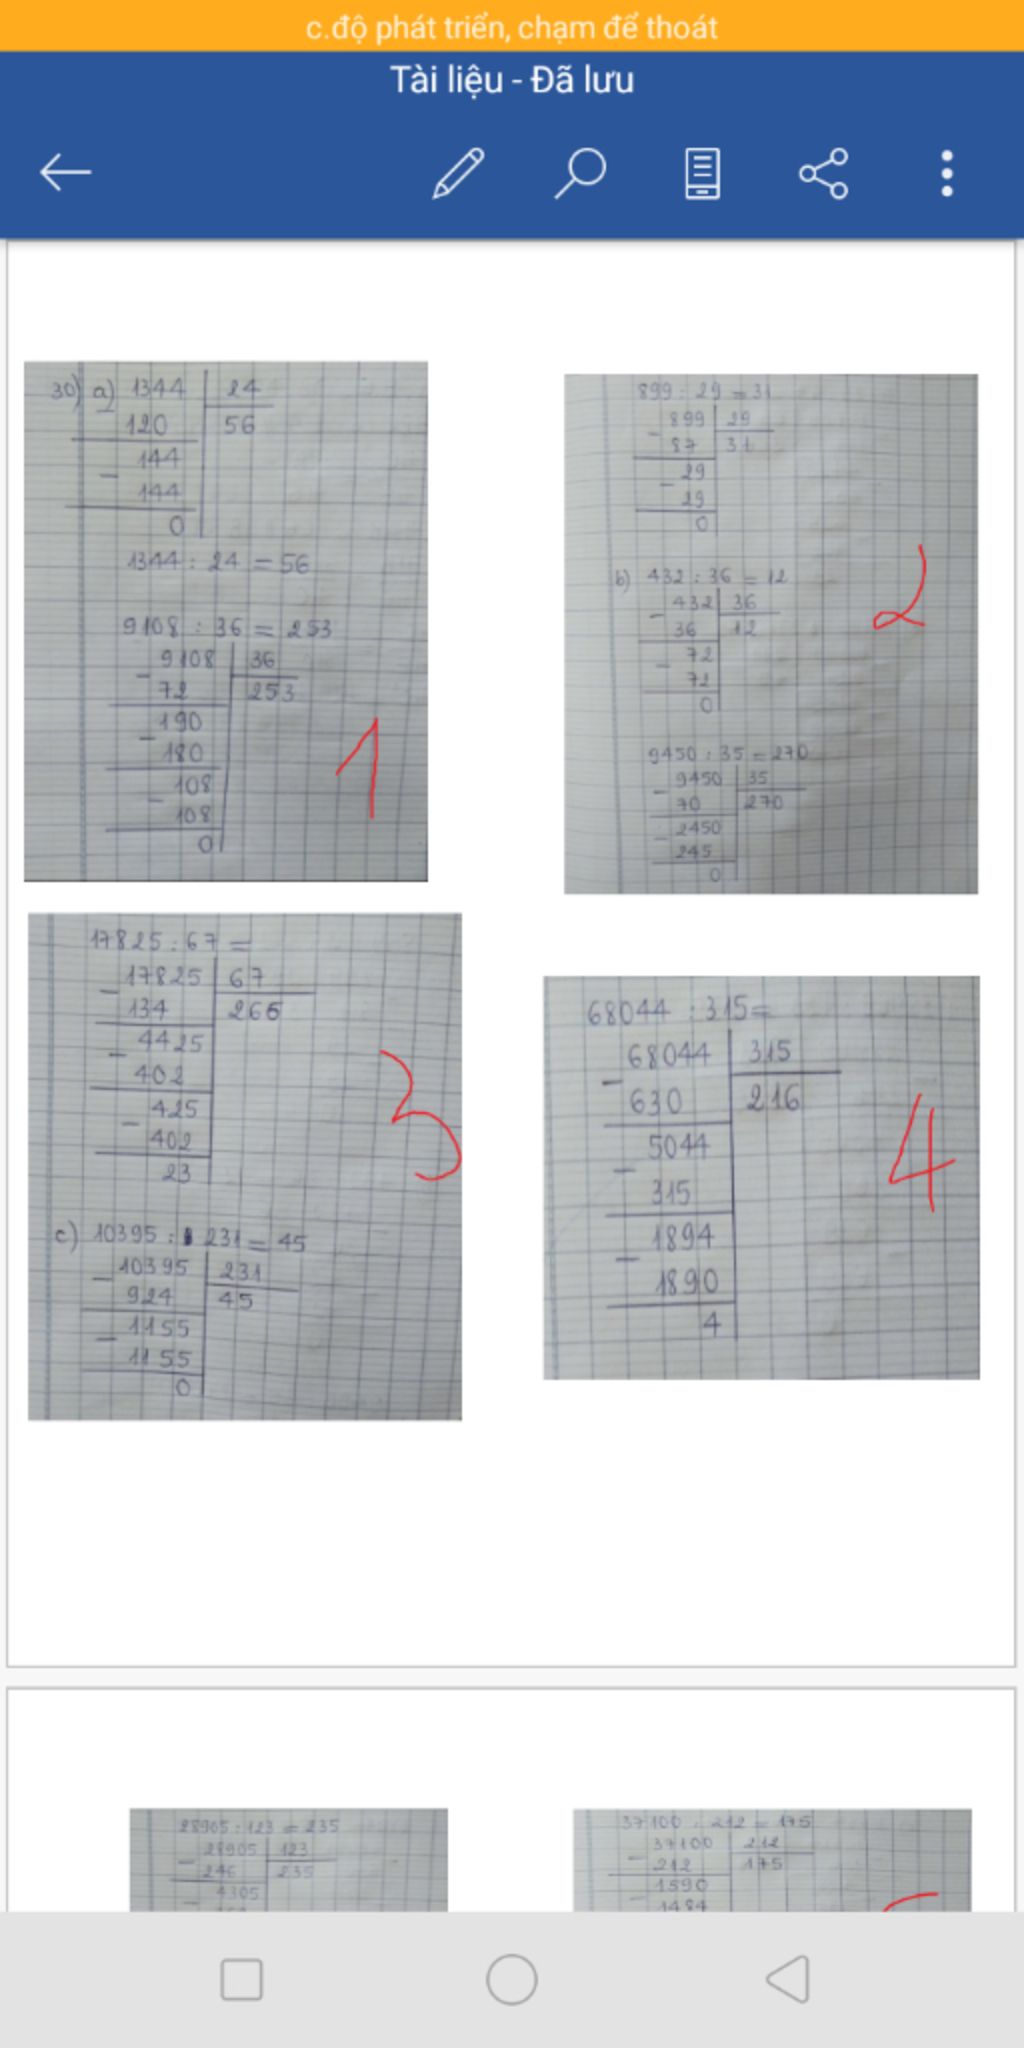 c.độ phát triển, chạm để thoát
Tài liệu - Đã lưu
30) a) 1344 24
120 56
- 144
144
0
1344 : 24 = 56
9108 : 36 = 253
- 9108 36
72 253
- 190
180
- 108
108
0
1
899 : 29 = 31
- 899 29
87 31
- 29
29
0
b) 432 : 36 = 12
- 432 36
36 12
- 72
72
0
9450 : 35 = 270
- 9450 35
70 270
- 2450
245
0
2
17825 : 67 =
- 17825 67
134 266
- 4425
402
- 425
402
23
c) 10395 : 231 = 45
- 10395 231
924 45
- 1155
1155
0
3
68044 : 315 =
- 68044 315
630 216
- 5044
315
- 1894
1890
4
4
28905 : 123 = 235
- 28905 123
246 235
- 4305
37100 : 212 = 175
- 37100 212
212 175
- 1590
1484